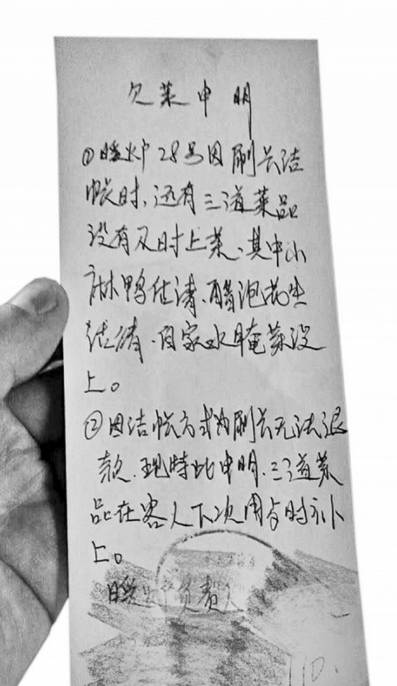 欠菜申明
①暖炉28号因刷卡洁
帐时，还有三道菜品
没有及时上菜、其中小
麻鸭估清、醋泡花生
估清、自家水腌菜没
上。
②因洁帐方式为刷卡无法退
款、现特此申明、三道菜
品在客人下次用步时补
上。
暖 负责人